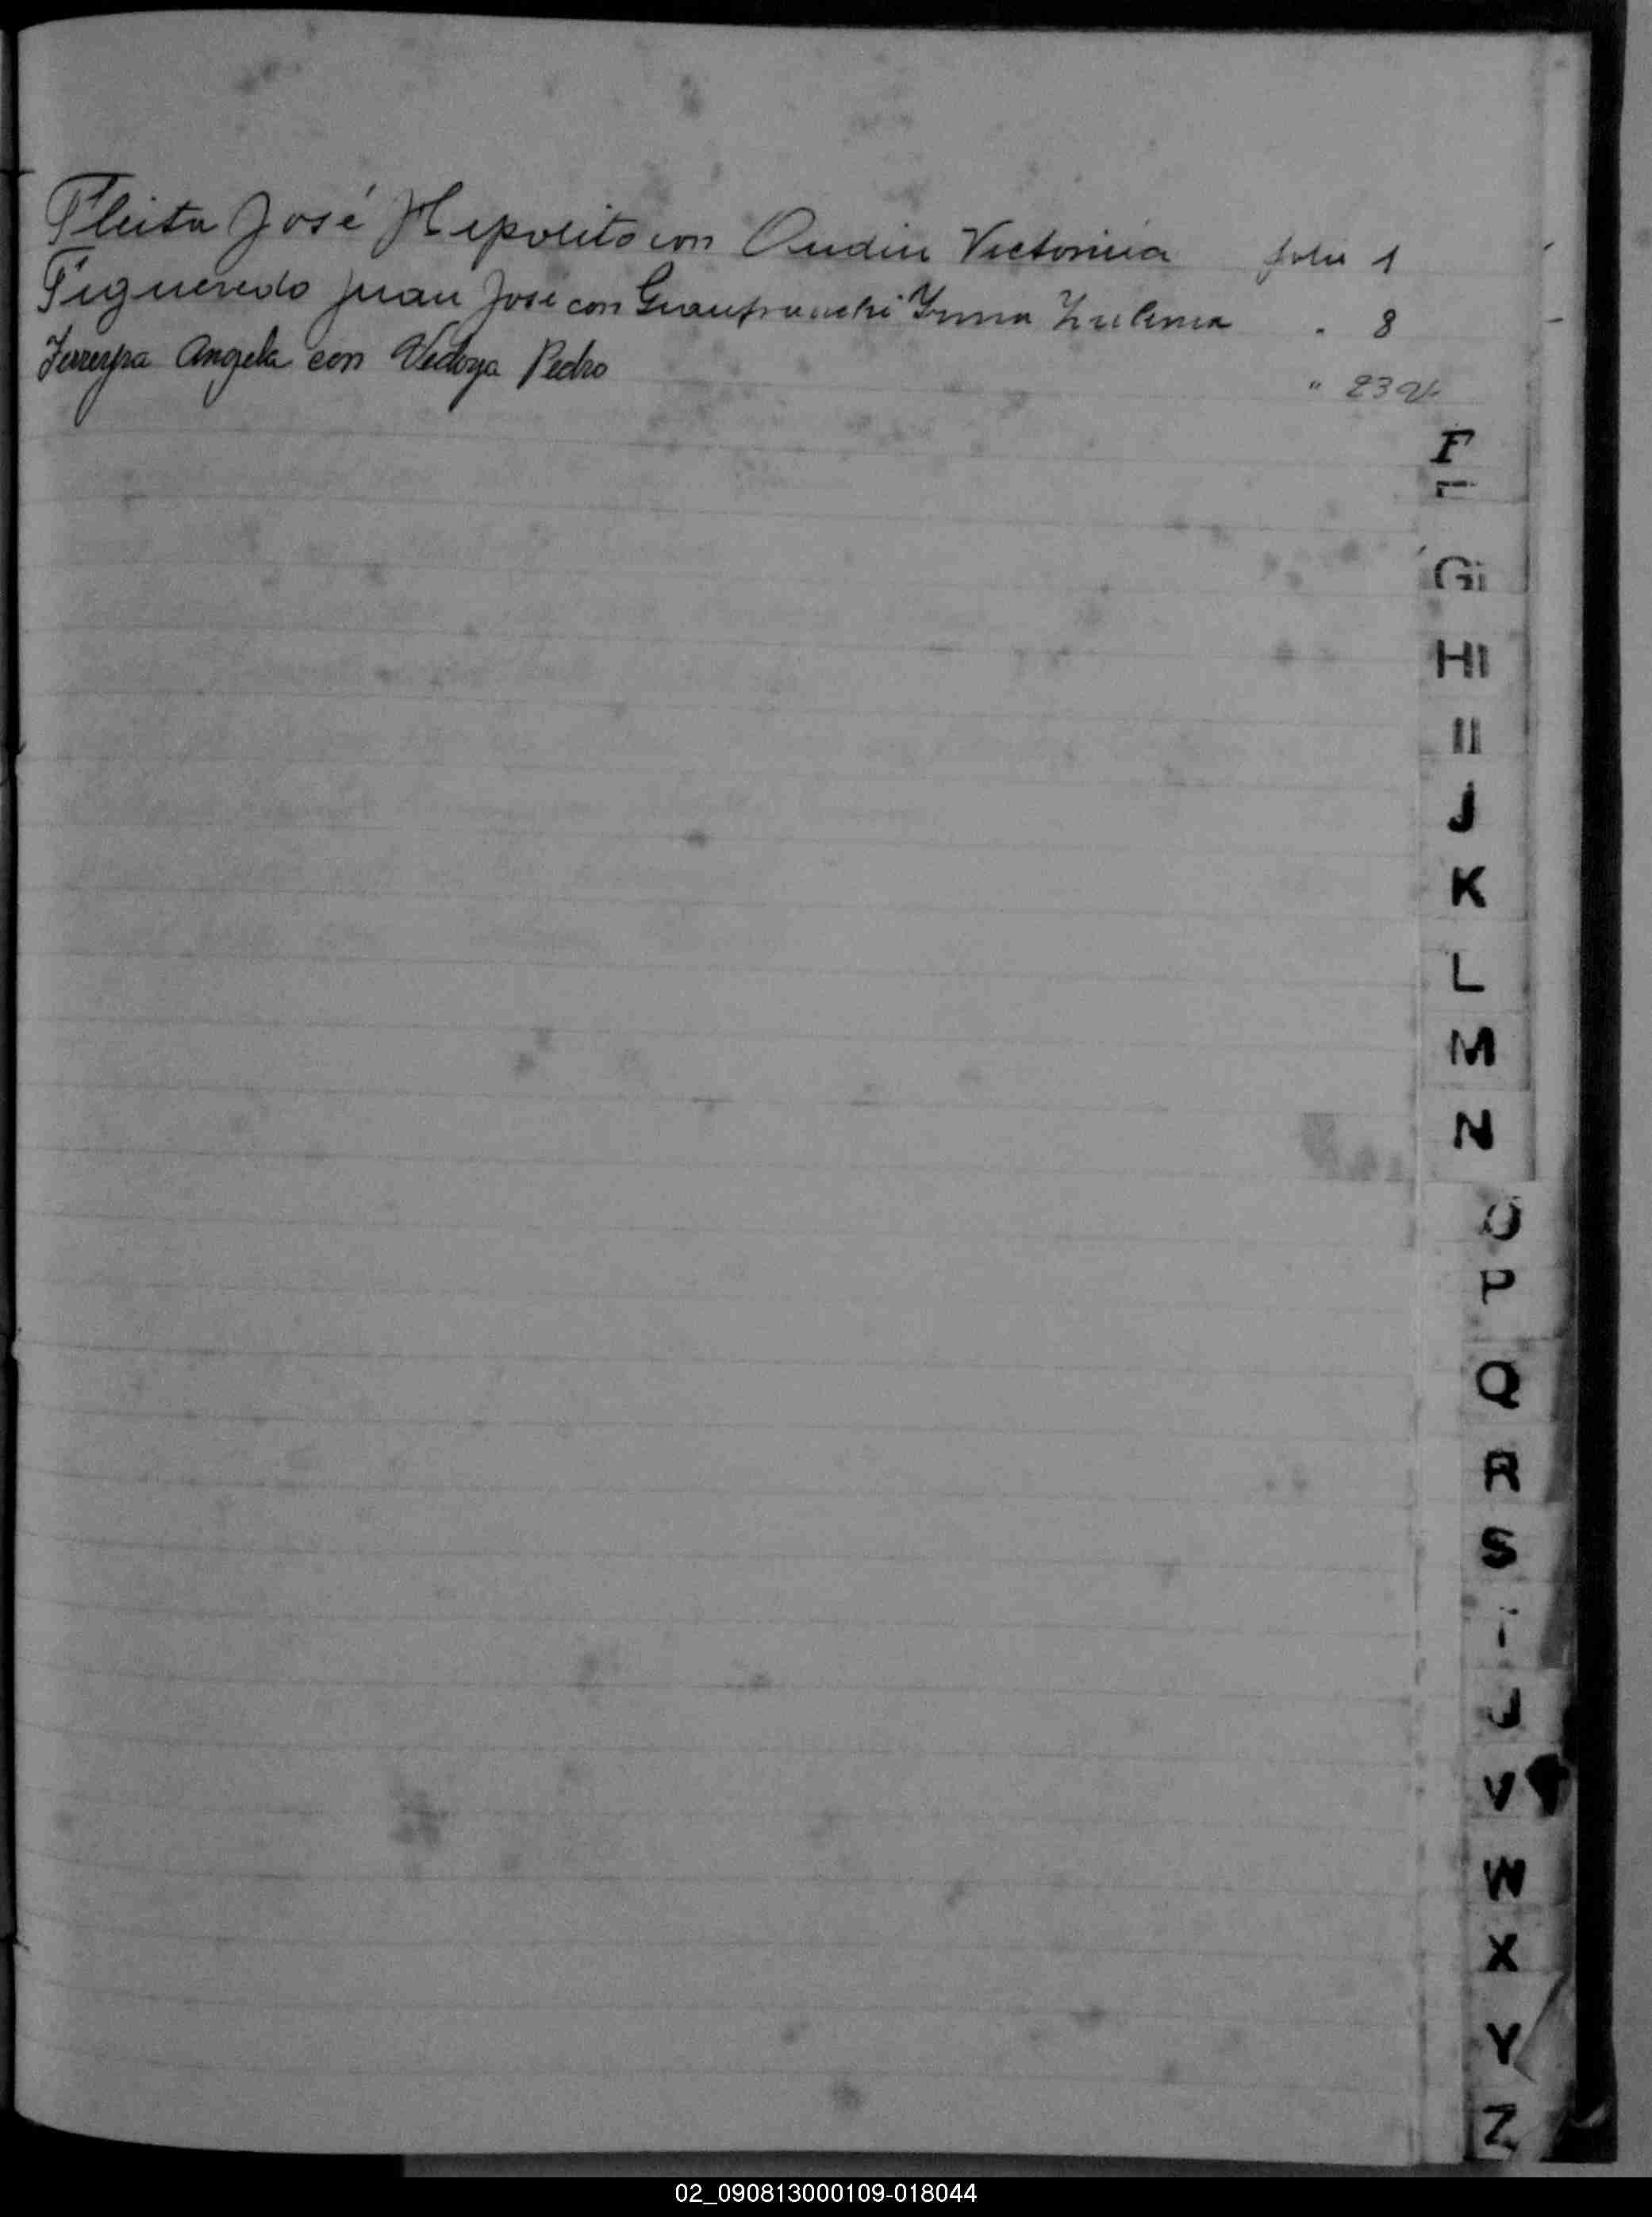 Fleita José Hipolito con Ondin Victorina folio 1
Figueredo Juan José con Gianfranchi Irma Zulema " 8
Ferreyra Angela con Vedoya Pedro
" 23 v
F
G
H
I
J
K
L
M
N
O
P
Q
R
S
V
W
X
Y
Z
02_090813000109-018044